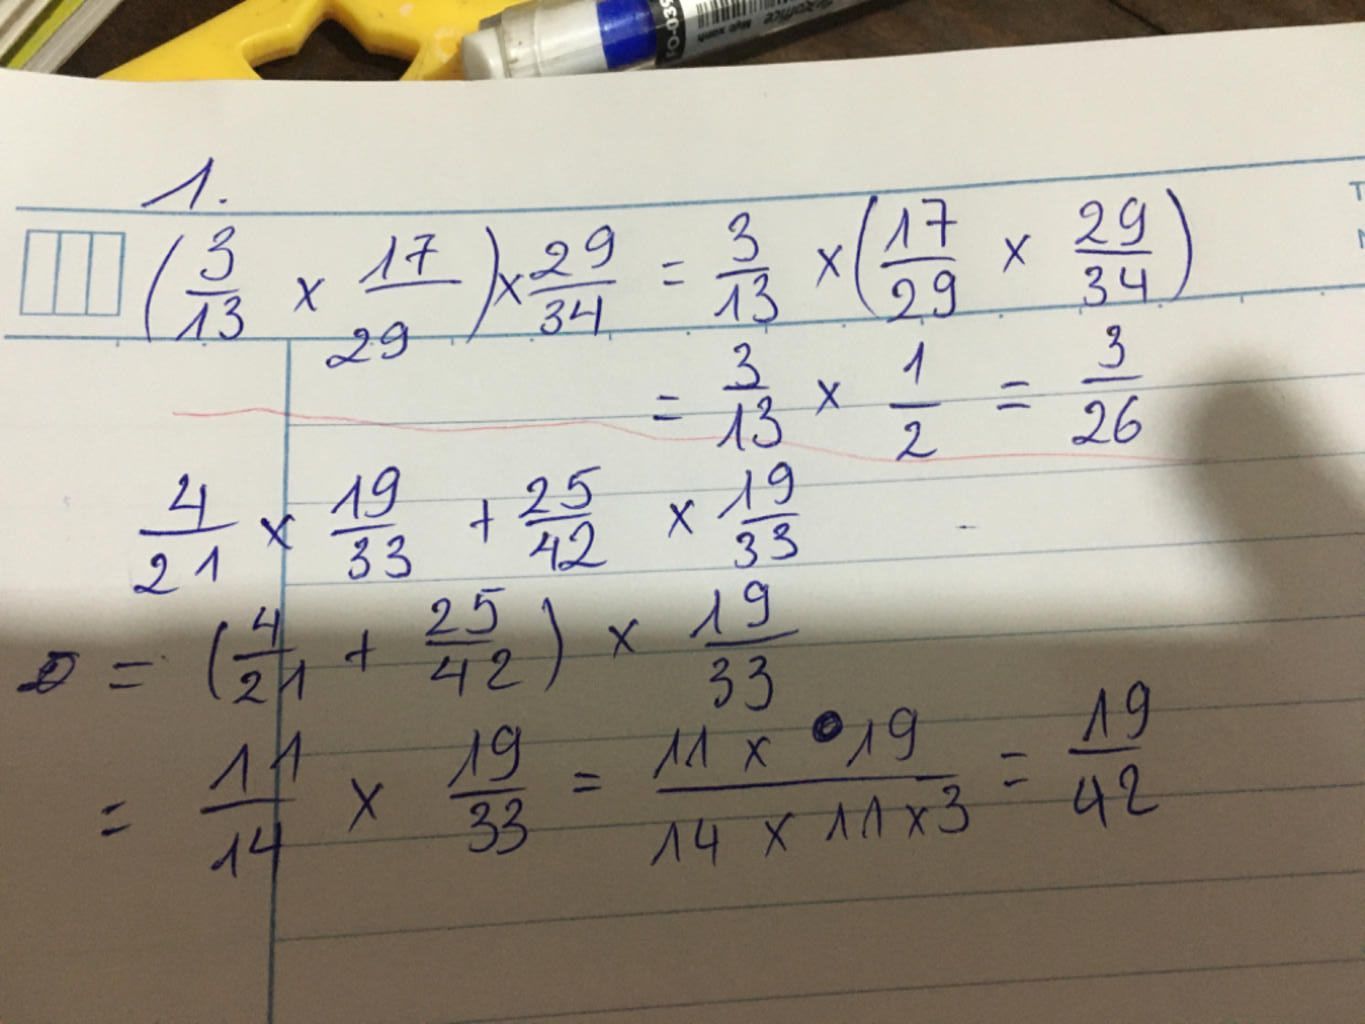 1.
(3/13 × 17/29) × 29/34 = 3/13 × (17/29 × 29/34)
= 3/13 × 1/2 = 3/26
4/21 × 19/33 + 25/42 × 19/33
= (4/21 + 25/42) × 19/33
= 11/14 × 19/33 = 11 × 19 / 14 × 11 × 3 = 19/42